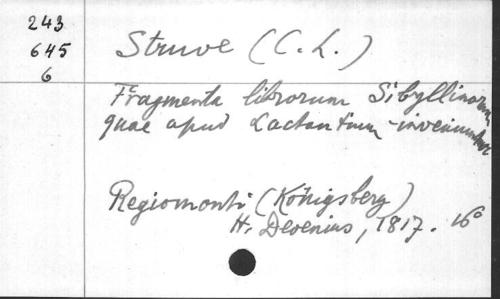 243
645
6
Struve (C. L.)
Fragmenta librorum Sibyllinorum
quae apud Lactantium inveniuntur
Regiomonti (Königsberg)
H. Devenius, 1817. 16°